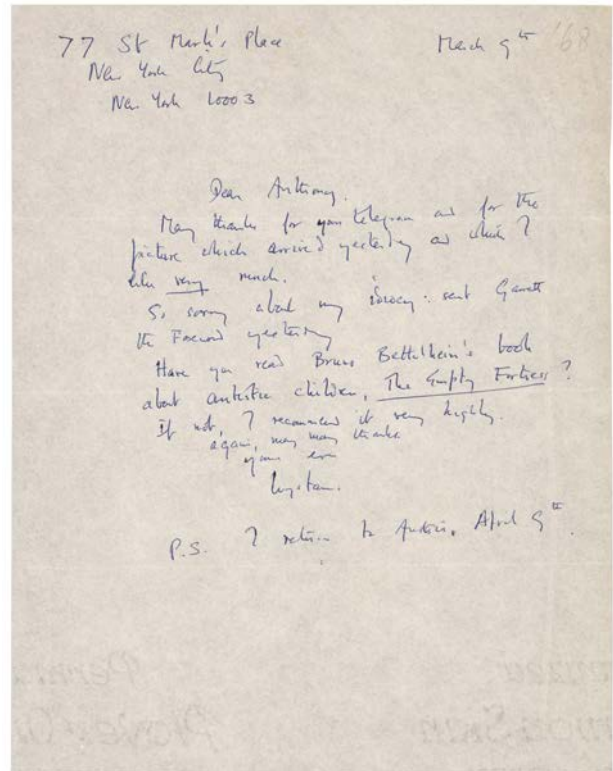 77 St Mark's Place March 9th '68
New York City
New York 10003
Dear Anthony.
Many thanks for your telegram and for the
picture which arrived yesterday and which I
like very much.
So sorry about my idiocy: sent Garrett
the Foreword yesterday
Have you read Bruno Bettelheim's book
about autistic children, The Empty Fortress?
If not, I recommend it very highly.
again, many many thanks
yours ever
Wystan.
P.S. I return to Austria, April 9th.